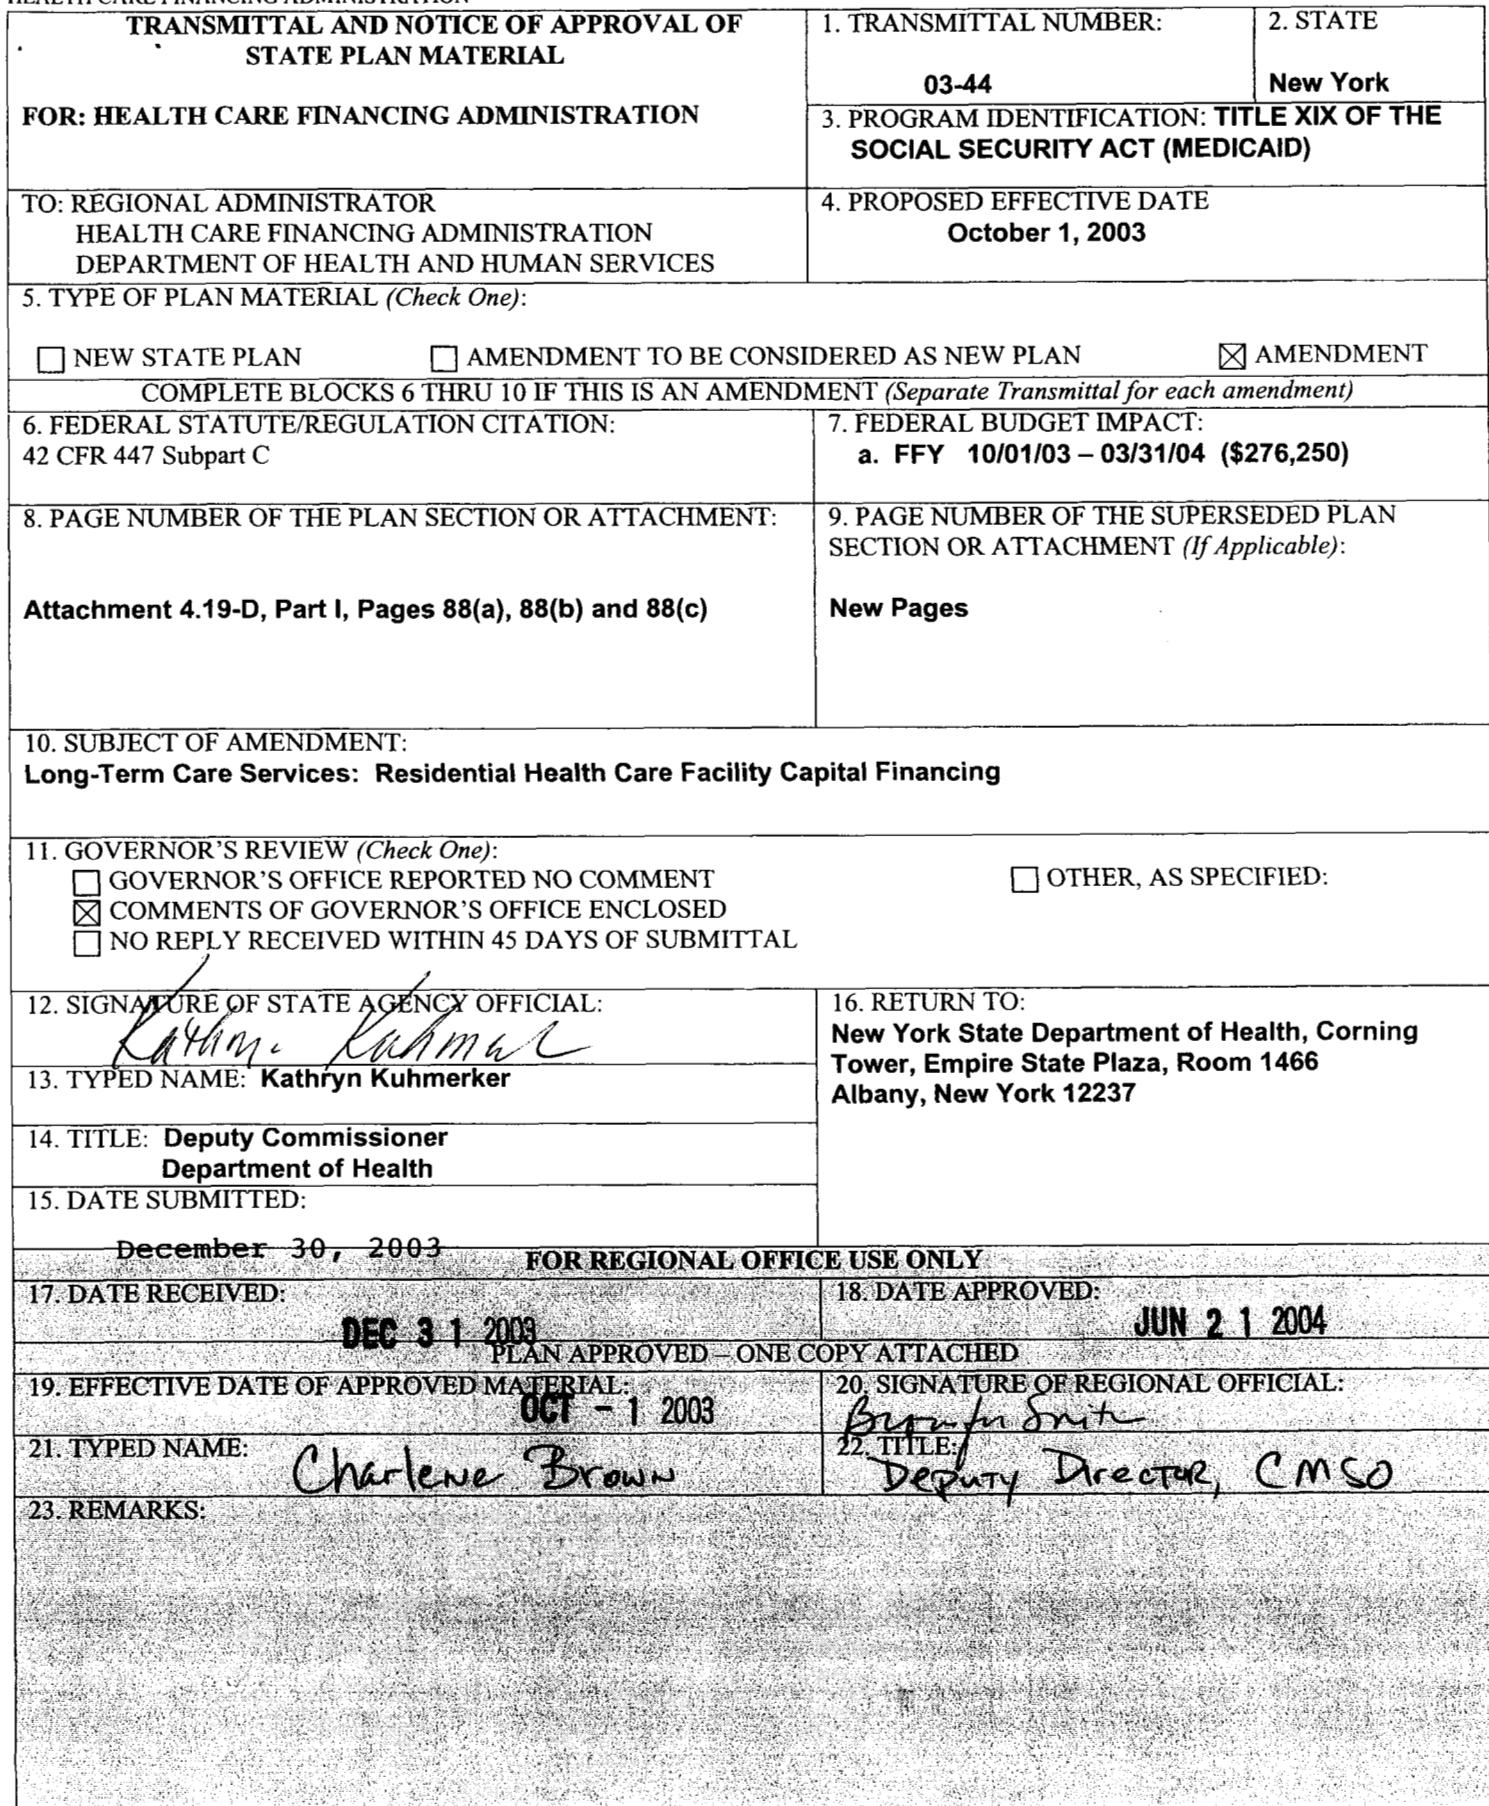 HEALTH CARE FINANCING ADMINISTRATION
TRANSMITTAL AND NOTICE OF APPROVAL OF
STATE PLAN MATERIAL
FOR: HEALTH CARE FINANCING ADMINISTRATION
1. TRANSMITTAL NUMBER:
03-44
2. STATE
New York
3. PROGRAM IDENTIFICATION: TITLE XIX OF THE
SOCIAL SECURITY ACT (MEDICAID)
TO: REGIONAL ADMINISTRATOR
HEALTH CARE FINANCING ADMINISTRATION
DEPARTMENT OF HEALTH AND HUMAN SERVICES
4. PROPOSED EFFECTIVE DATE
October 1, 2003
5. TYPE OF PLAN MATERIAL (Check One):
☐ NEW STATE PLAN ☐ AMENDMENT TO BE CONSIDERED AS NEW PLAN ☒ AMENDMENT
COMPLETE BLOCKS 6 THRU 10 IF THIS IS AN AMENDMENT (Separate Transmittal for each amendment)
6. FEDERAL STATUTE/REGULATION CITATION:
42 CFR 447 Subpart C
7. FEDERAL BUDGET IMPACT:
a. FFY 10/01/03 – 03/31/04 ($276,250)
8. PAGE NUMBER OF THE PLAN SECTION OR ATTACHMENT:
Attachment 4.19-D, Part I, Pages 88(a), 88(b) and 88(c)
9. PAGE NUMBER OF THE SUPERSEDED PLAN
SECTION OR ATTACHMENT (If Applicable):
New Pages
10. SUBJECT OF AMENDMENT:
Long-Term Care Services: Residential Health Care Facility Capital Financing
11. GOVERNOR'S REVIEW (Check One):
☐ GOVERNOR'S OFFICE REPORTED NO COMMENT
☒ COMMENTS OF GOVERNOR'S OFFICE ENCLOSED
☐ NO REPLY RECEIVED WITHIN 45 DAYS OF SUBMITTAL
☐ OTHER, AS SPECIFIED:
12. SIGNATURE OF STATE AGENCY OFFICIAL:
13. TYPED NAME: Kathryn Kuhmerker
14. TITLE: Deputy Commissioner
Department of Health
15. DATE SUBMITTED:
December 30, 2003
16. RETURN TO:
New York State Department of Health, Corning
Tower, Empire State Plaza, Room 1466
Albany, New York 12237
FOR REGIONAL OFFICE USE ONLY
17. DATE RECEIVED:
DEC 31 2003
18. DATE APPROVED:
JUN 21 2004
PLAN APPROVED – ONE COPY ATTACHED
19. EFFECTIVE DATE OF APPROVED MATERIAL:
OCT - 1 2003
20. SIGNATURE OF REGIONAL OFFICIAL:
21. TYPED NAME:
Charlene Brown
22. TITLE:
Deputy Director, CMSO
23. REMARKS: